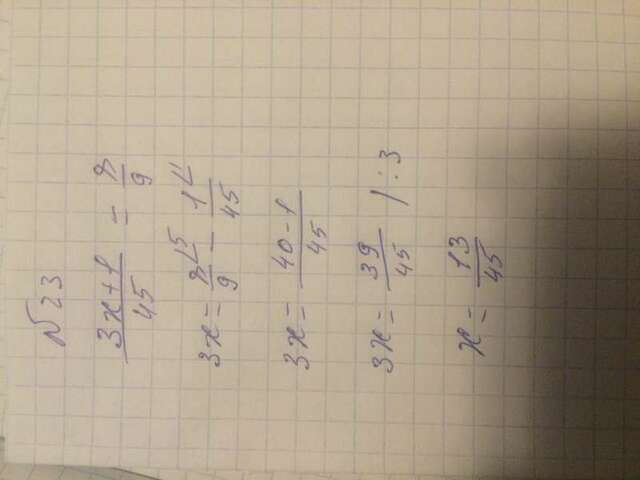 №23
3x+1/45 = 8/9
3x = 8⌊5/9 - 1⌊1/45
3x = 40-1/45
3x = 39/45 | : 3
x = 13/45